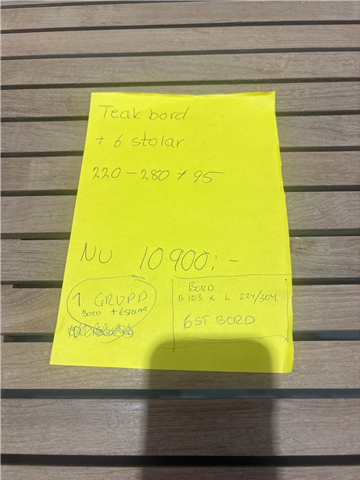 Teak bord
+ 6 stolar
220 - 280 × 95
NU 10 900:-
1 GRUPP
BORD + 6 STOLAR
BORD
B 103 X L 224/304
6 ST BORD